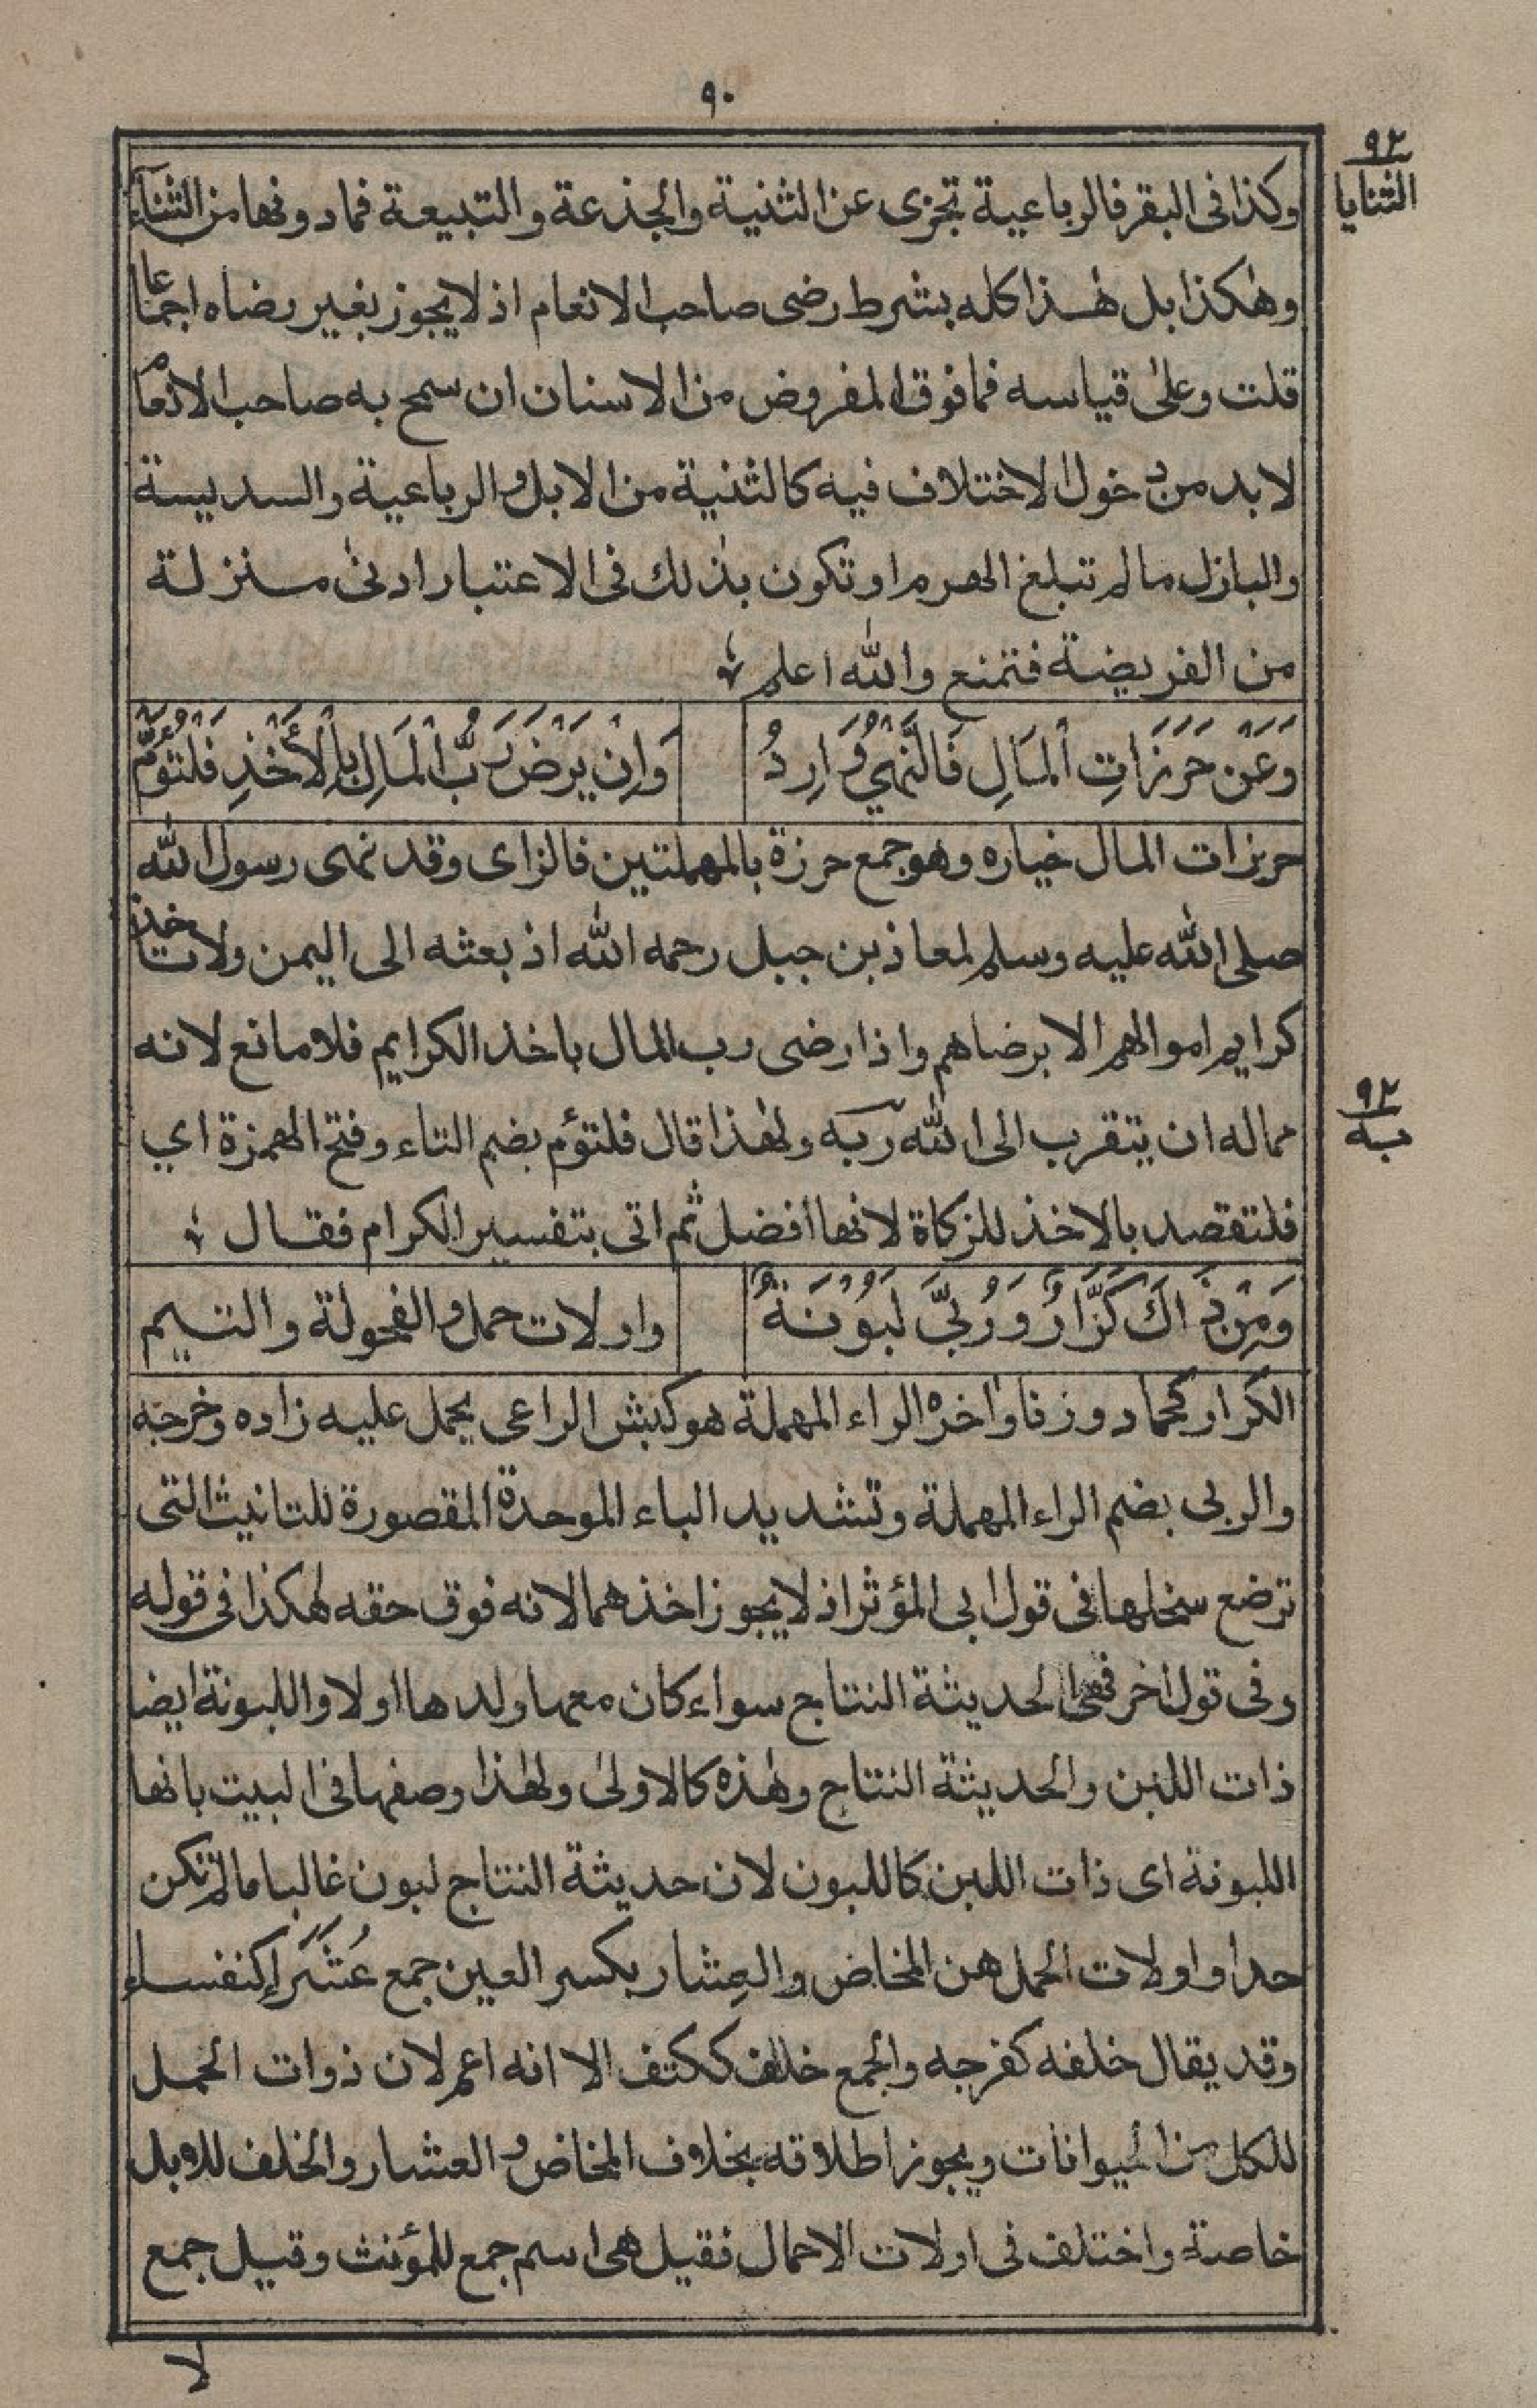 ٩٠
٩٢
الثنايا
وكذا فى البقر فالرباعية تجزى عن الثنية والجذعة والتبيعة فما دونها من الثناء
وهٰكذا بل هٰذا كله بشرط رضى صاحب الانعام اذ لا يجوز بغير رضاه اجماعا
قلت وعلىٰ قياسه فما فوق المفروض من الاسنان ان سمح به صاحب الانعام
لا بد من دخول الاختلاف فيه كالثنية من الابل والرباعية والسديسة
والبازل ما لم تبلغ الهرم او تكون بذٰلك فى الاعتبار ادنىٰ منزلة
من الفريضة فتمنع والله اعلم
وَعَنْ حَرَزَاتِ الْمَالِ فَالنَّهْيُ وَارِدُ وَاِنْ يَرْضَ رَبُّ الْمَالِ بِالْأَخْذِ فَلْتُؤَمّْ
حرزات المال خياره وهو جمع حرزة بالمهملتين فالزاى وقد نهى رسول الله
صلى الله عليه وسلم لمعاذ بن جبل رحمه الله اذ بعثه الى اليمن ولا تاخذ
كرايم اموالهم الا برضاهم واذا رضى رب المال باخذ الكرايم فلا مانع لانه
مماله ان يتقرب الى الله ربه ولهٰذا قال فلتؤم بضم التاء وفتح الهمزة اي
٩٢
به
فلتقصد بالاخذ للزكاة لانها افضل ثم اتى بتفسير الكرام فقال
وَمِنْ ذَاكَ كَرَّارٌ وَرُبىَّ لَبُوْنَةٌ واولات حمل والفحولة والتيم
الكرار كحماد وزنا واٰخره الراء المهملة هو كبش الراعى يحمل عليه زاده وخرجه
والربى بضم الراء المهملة وتشديد الباء الموحدة المقصورة للتانيث التى
ترضع سخلها فى قول ابى المؤثر اذ لا يجوز اخذهما لانه فوق حقه هٰكذا فى قوله
وفى قول اٰخر فهى الحديثة النتاج سواء كان معها ولدها اولا واللبونة ايضا
ذات اللبن والحديثة النتاج وهٰذه كالاولىٰ ولهٰذا وصفها فى البيت بانها
اللبونة اى ذات اللبن كاللبون لان حديثة النتاج لبون غالبا ما لم تكن
حدا واولات الحمل هن المخاض والعِشار بكسر العين جمع عُشَرَاء كنفساء
وقد يقال خلفه كفرجه والجمع خلف ككتف الا انه اعم لان ذوات الحمل
للكل من الحيوانات ويجوز اطلاقه بخلاف المخاض والعشار والخلف للابل
خاصة واختلف فى اولات الاحمال فقيل هى اسم جمع للمؤنث وقيل جمع
لا